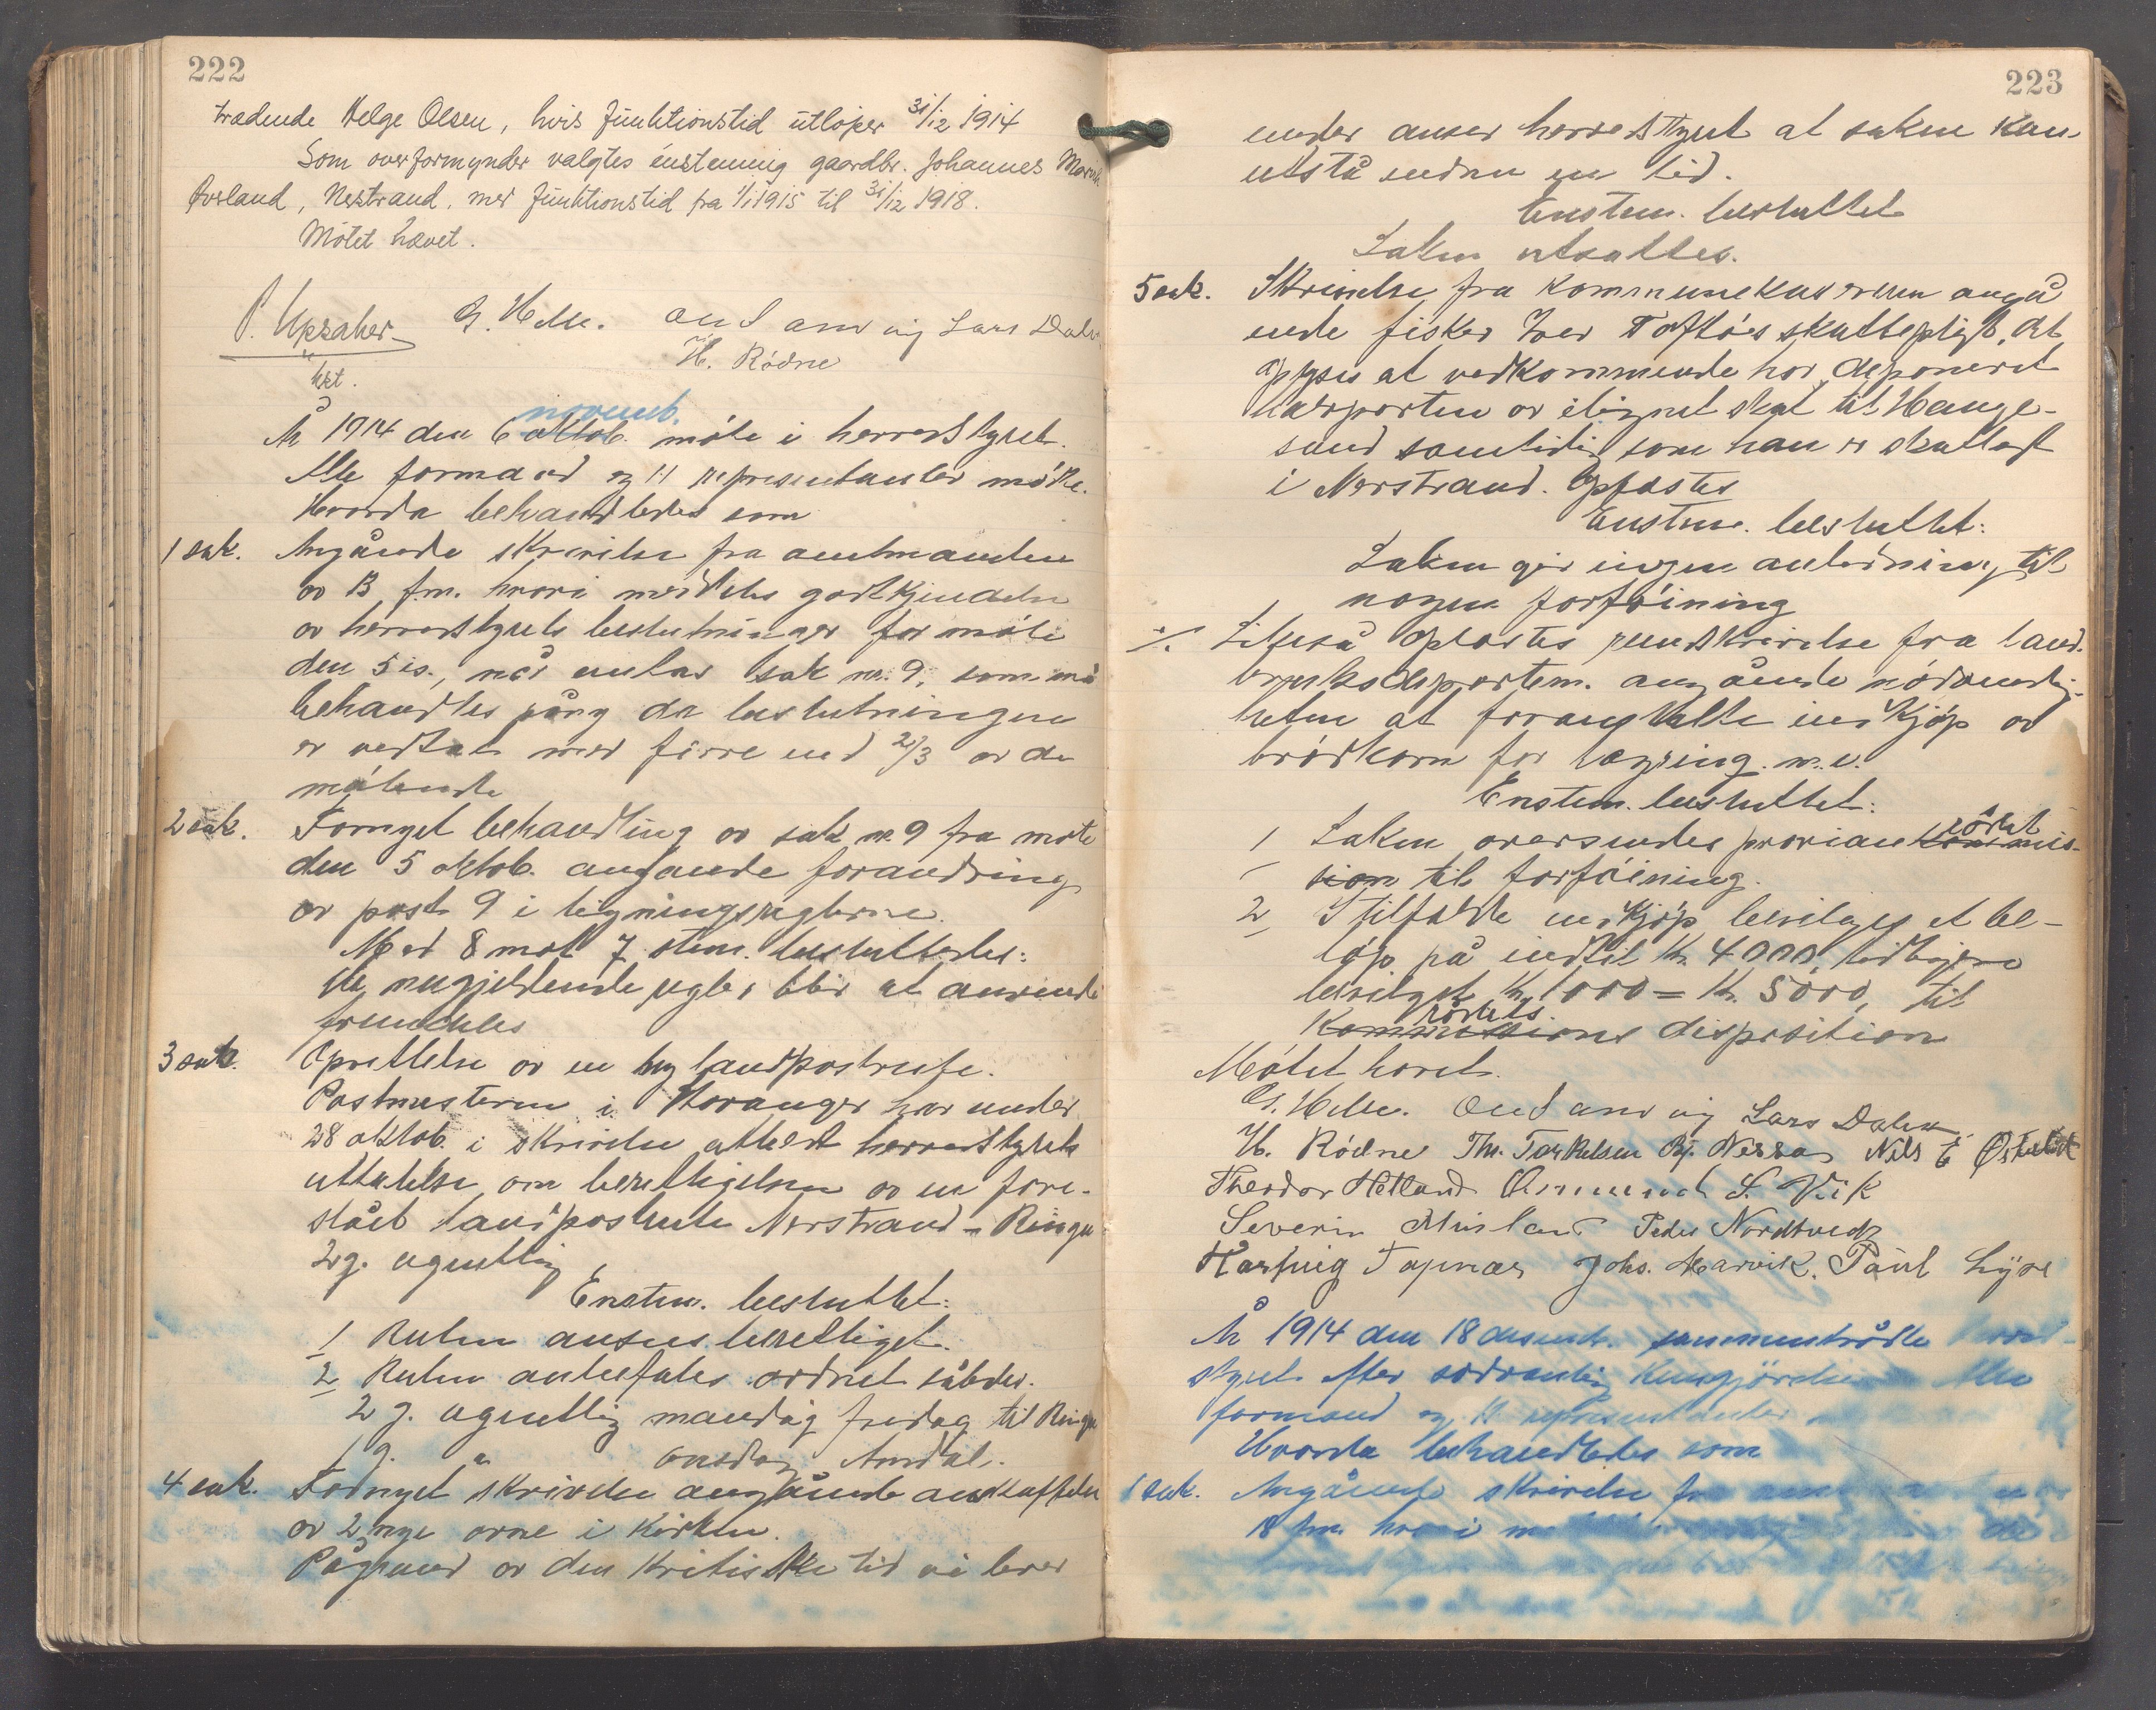 222
trædende Helge Olsen, hvis funktionstid utløper 31/12 1914
Som overformynder valgtes enstemmig gaardbr. Johannes
Øvsland, Nerstrand, med funktionstid fra 1/1 1915 til 31/12 1918.
Møtet hævet.
G. Helle. Lars Dalva
H. Rødne
År 1914 den 6 oktob. novemb. møte i herredstyret.
Alle formænd og 11 representanter møtte.
Hvorda behandledes som
1 sak. Angående skrivelse fra amtmanden
av 13 f.m. hvori meddeles godkjendelse
av herredstyrets beslutninger for møte
den 5 ds., når untas sak nr. 9, som må
behandles påny da beslutningen
er vedtat med færre end 2/3 av de
møtende
2 sak. Fornyet behandling av sak nr. 9 fra møte
den 5 oktob. angående forandring
av post 9 i ligningsreglerne.
Med 8 mot 7 stem. besluttedes:
De nugjeldende regler blir at anvende
fremdeles
3 sak. Oprettelse av en ny landpostrute.
Postmesteren i Stavanger har under
28 oktob. i skrivelse utbedt herredstyrets
uttalelse om berettigelsen av en fore-
slået landpostrute Nerstrand - Ringen
2 g. ugentlig
Enstem. besluttet:
1 Ruten ansees berettiget.
2 Ruten anbefales ordnet således.
2 g. ugentlig mandag fredag til Ringen
1 g. " onsdag Amdal.
4 sak. Fornyet skrivelse angående anskaffelse
av 2 nye ovne i kirken.
På grund av den kritiske tid vi lever
223
under anser herredstyret at saken kan
utstå endnu en tid.
Enstem. besluttet
Saken utsættes.
5 sak. Skrivelse fra kommunekasserern angå
ende fisker Iver Toftøs skattepligt. Det
oplyses at vedkommende har deponeret
halvparten av ilignet skat til Hauge-
sund samtidig som han er skattlagt
i Nerstrand. Oplæstes
Enstem. besluttet:
Saken gir ingen anledning til
nogen forføining
Likeså oplæstes rundskrivelse fra land-
bruksdepartem. angående nødvendig-
heten at foranstalte indkjøp av
brødkorn for lagring m.v.
Enstem. besluttet:
1 Saken oversendes proviantkommis- rådet
sion til forføining.
2 I tilfælde indkjøp bevilges et be-
løp på indtil kr. 4000, tidligere
bevilget kr. 1000 = kr. 5000, til
Kommissions rådets disposition
Møtet hævet.
G. Helle. Lars Dalva
H. Rødne Th. Torkelsen Bj. Nessa Nils E Østabø
Theodor Hetland Osmund S. Vik
Severin Peder Nordtvedt
Hartvig Johs. Marvik. Paul Lyse
År 1914 den 18 desemb. sammentrådte herred-
styret efter sedvanlig kungjørelse Alle
formænd og 11 representanter
Hvorda behandledes som
1 sak. Angående skrivelse fra
18 f.m. hvori